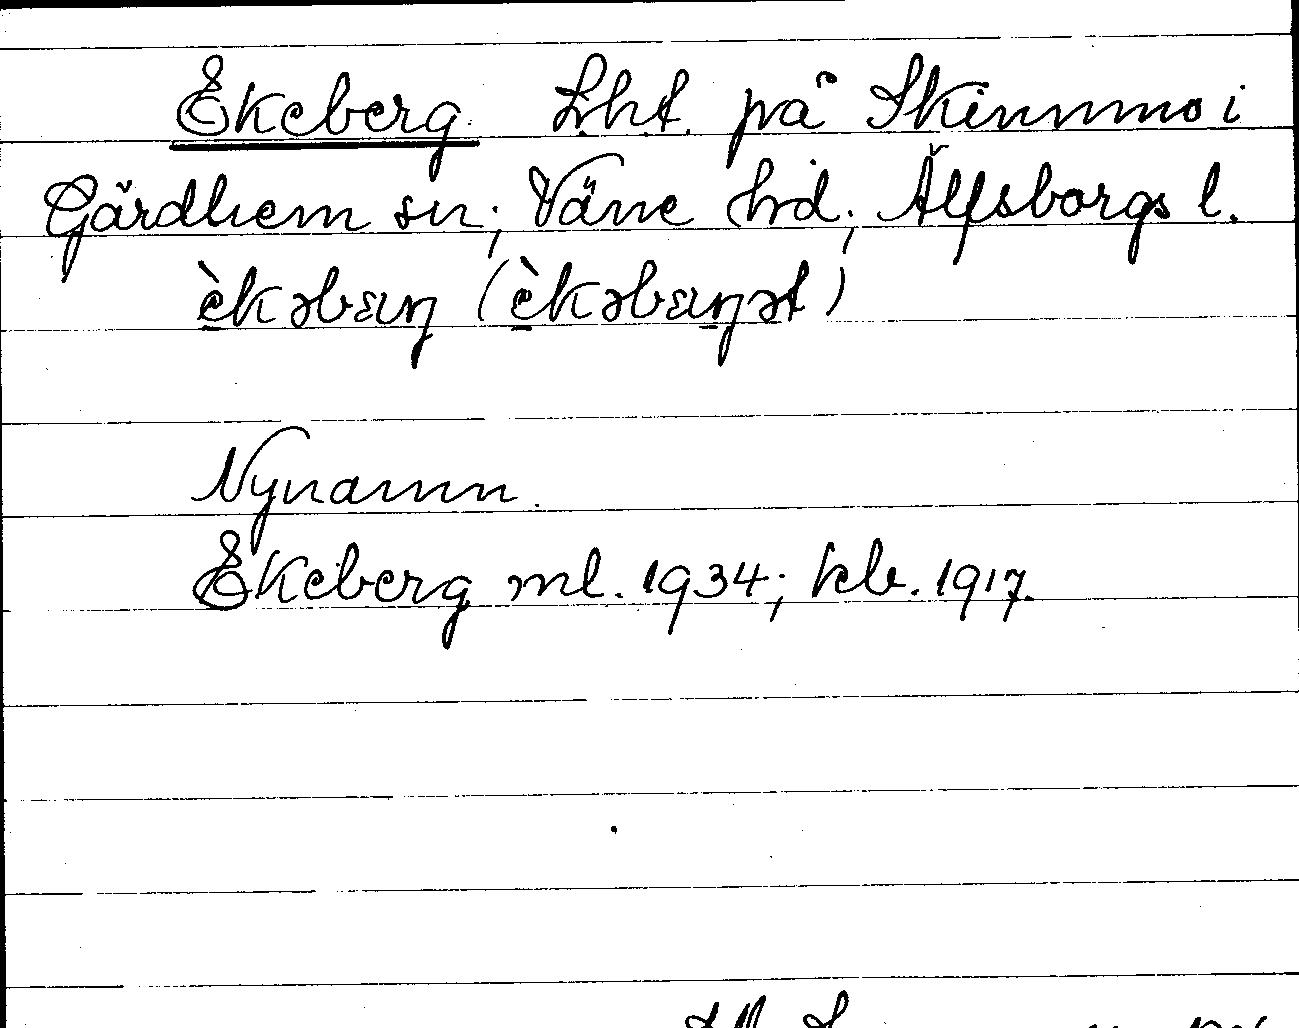 Ekeberg Lht. på Skinnmo i
Gärdhem sn; Väne hd; Älfsborgs l.
èkəbærı̨ (èkəbærı̨ət)
Nynamn.
Ekeberg ml. 1934; kb. 1917.